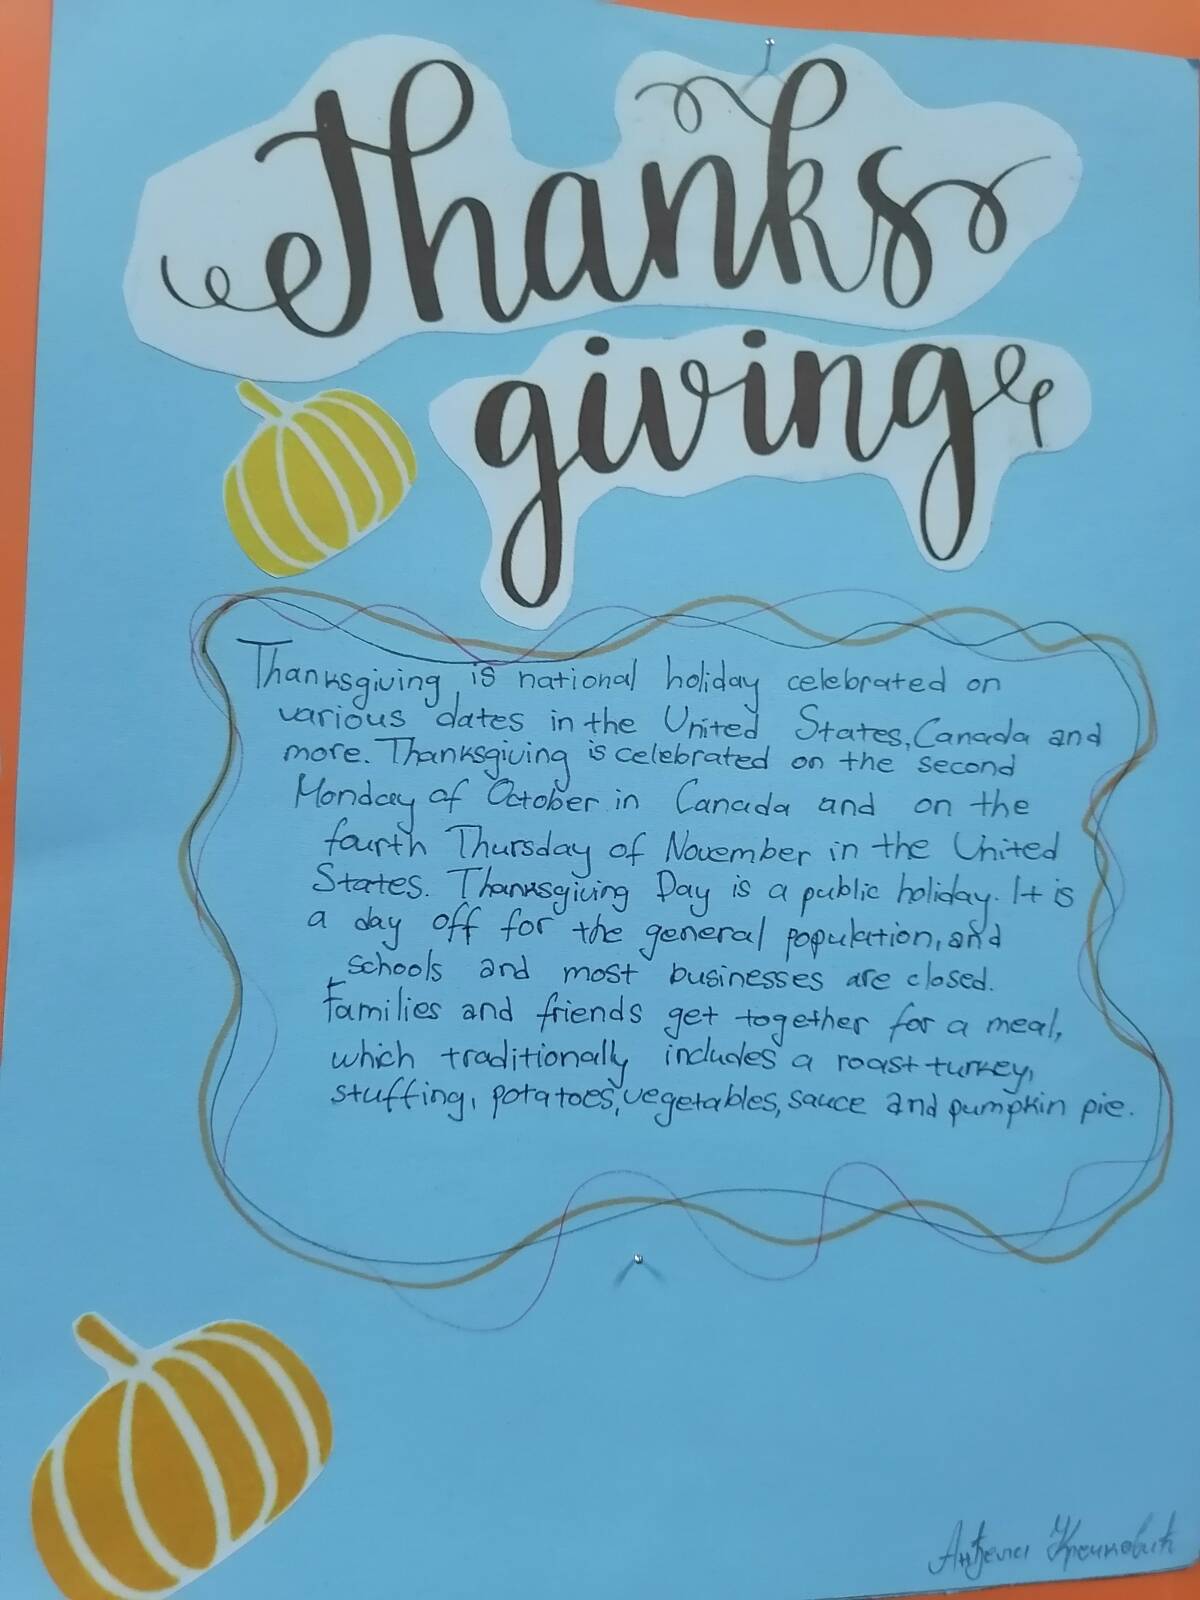 Thanks
giving
Thanksgiving is national holiday celebrated on
various dates in the United States, Canada and
more. Thanksgiving is celebrated on the second
Monday of October in Canada and on the
fourth Thursday of November in the United
States. Thanksgiving Day is a public holiday. It is
a day off for the general population, and
schools and most businesses are closed.
Families and friends get together for a meal,
which traditionally includes a roast turkey,
stuffing, potatoes, vegetables, sauce and pumpkin pie.
Анђела